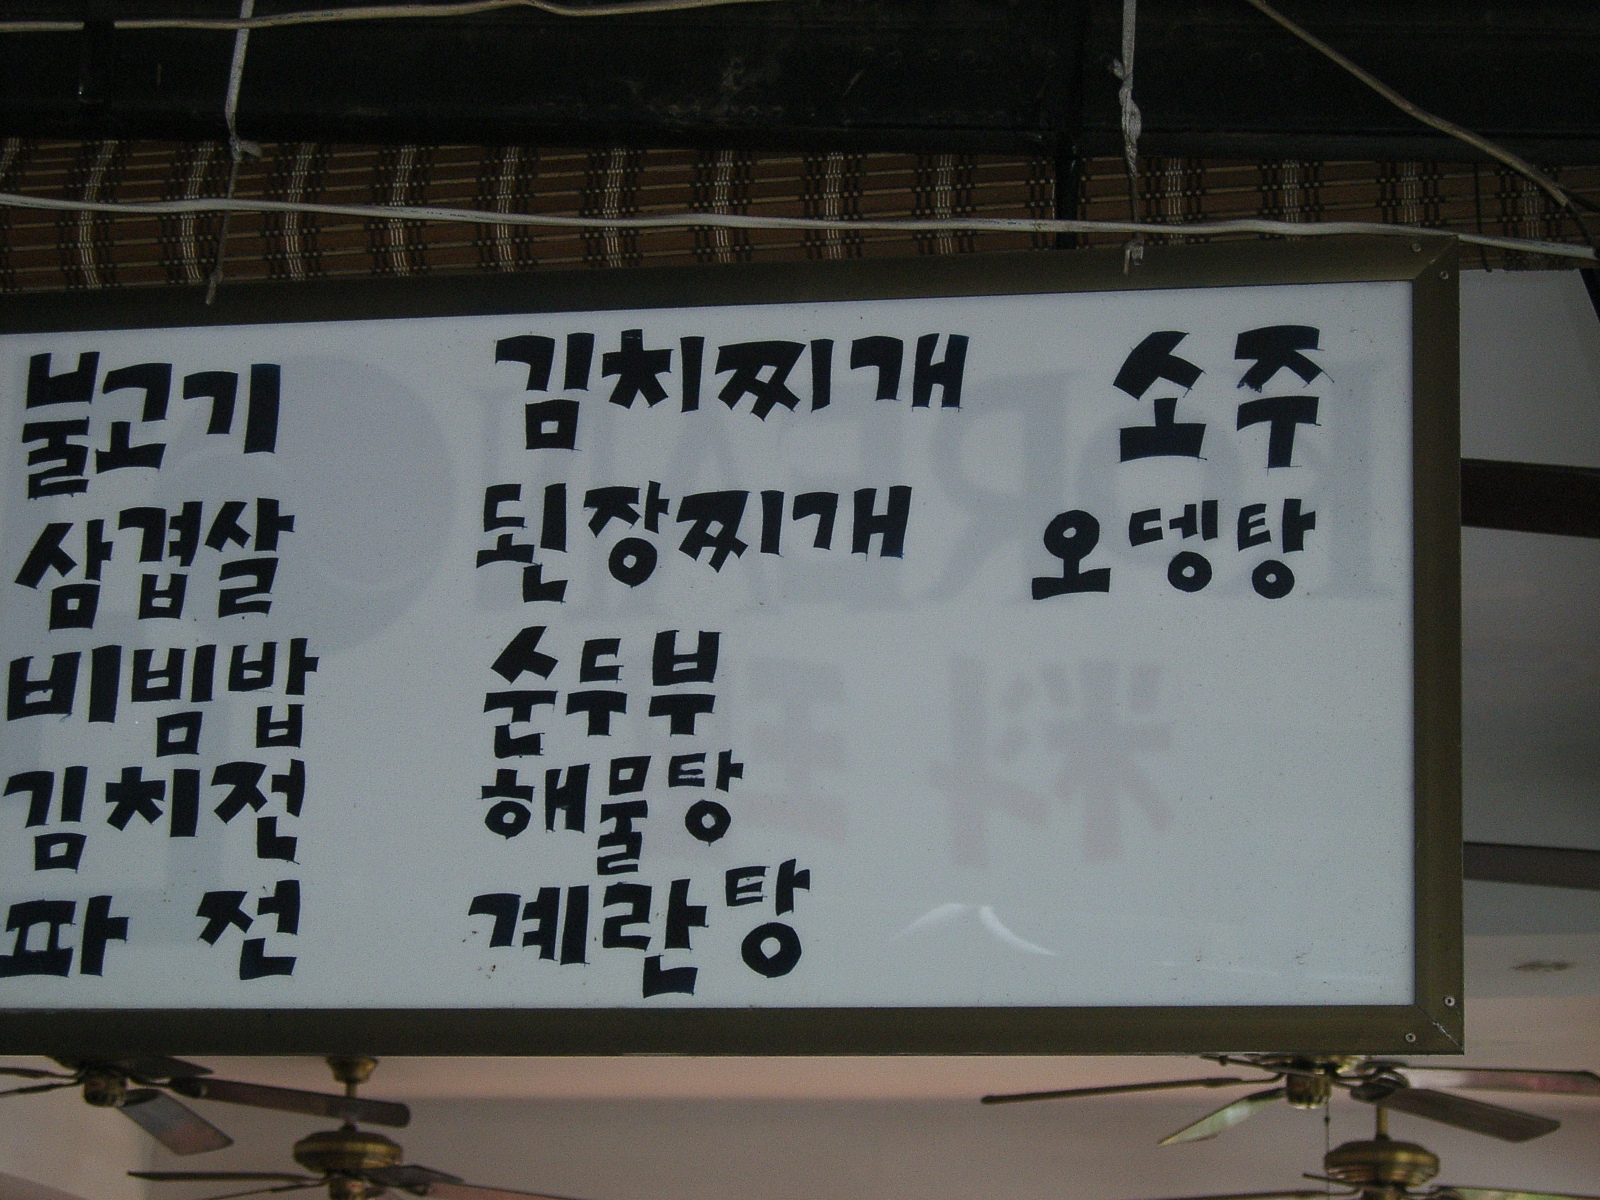 불고기
삼겹살
비빔밥
김치전
파 전
김치찌개
된장찌개
순두부
해물탕
계란탕
소주
오뎅탕